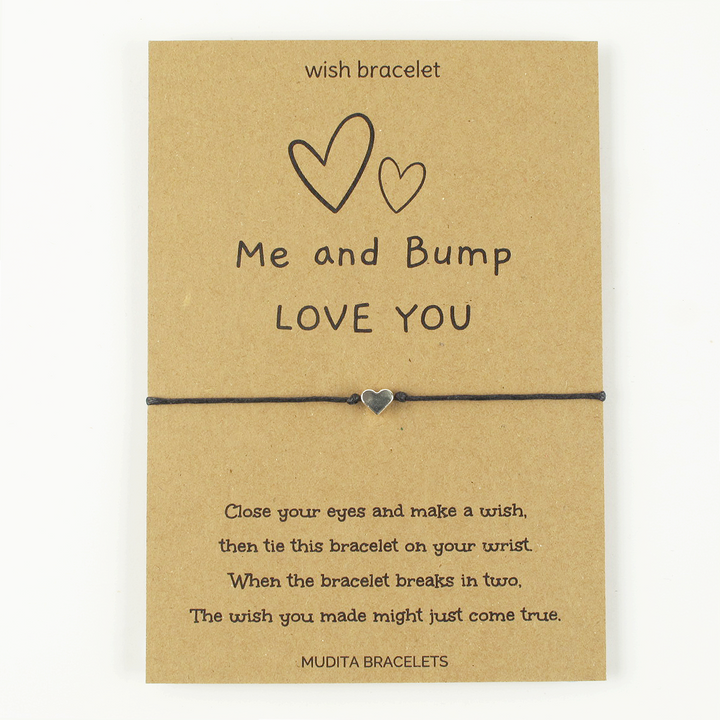 wish bracelet
Me and Bump
LOVE YOU
Close your eyes and make a wish,
then tie this bracelet on your wrist.
When the bracelet breaks in two,
The wish you made might just come true.
MUDITA BRACELETS